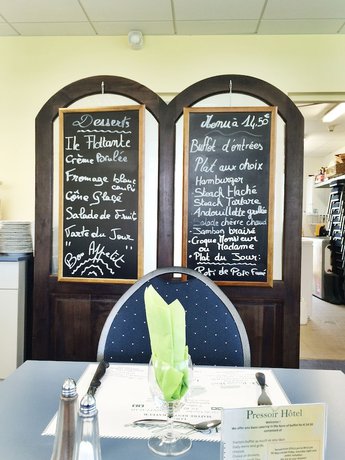 Desserts
Ile Flottante
Crème Brulée
Fromage blanc
ou Pié
Cône Glacé
Salade de Fruit
Tarte du Jour
Bon Appetit
Menu à 14,50€
Buffet d'entrées
Plat aux choix
Hamburger
Steack Haché
Steack Tartare
Andouillette grillée
salade chèvre chaud
Jambon braisé
Croque Monsieur
ou Madame
Plat du Jour:
Roti de Porc Fumé
Pressoir Hôtel
Welcome !